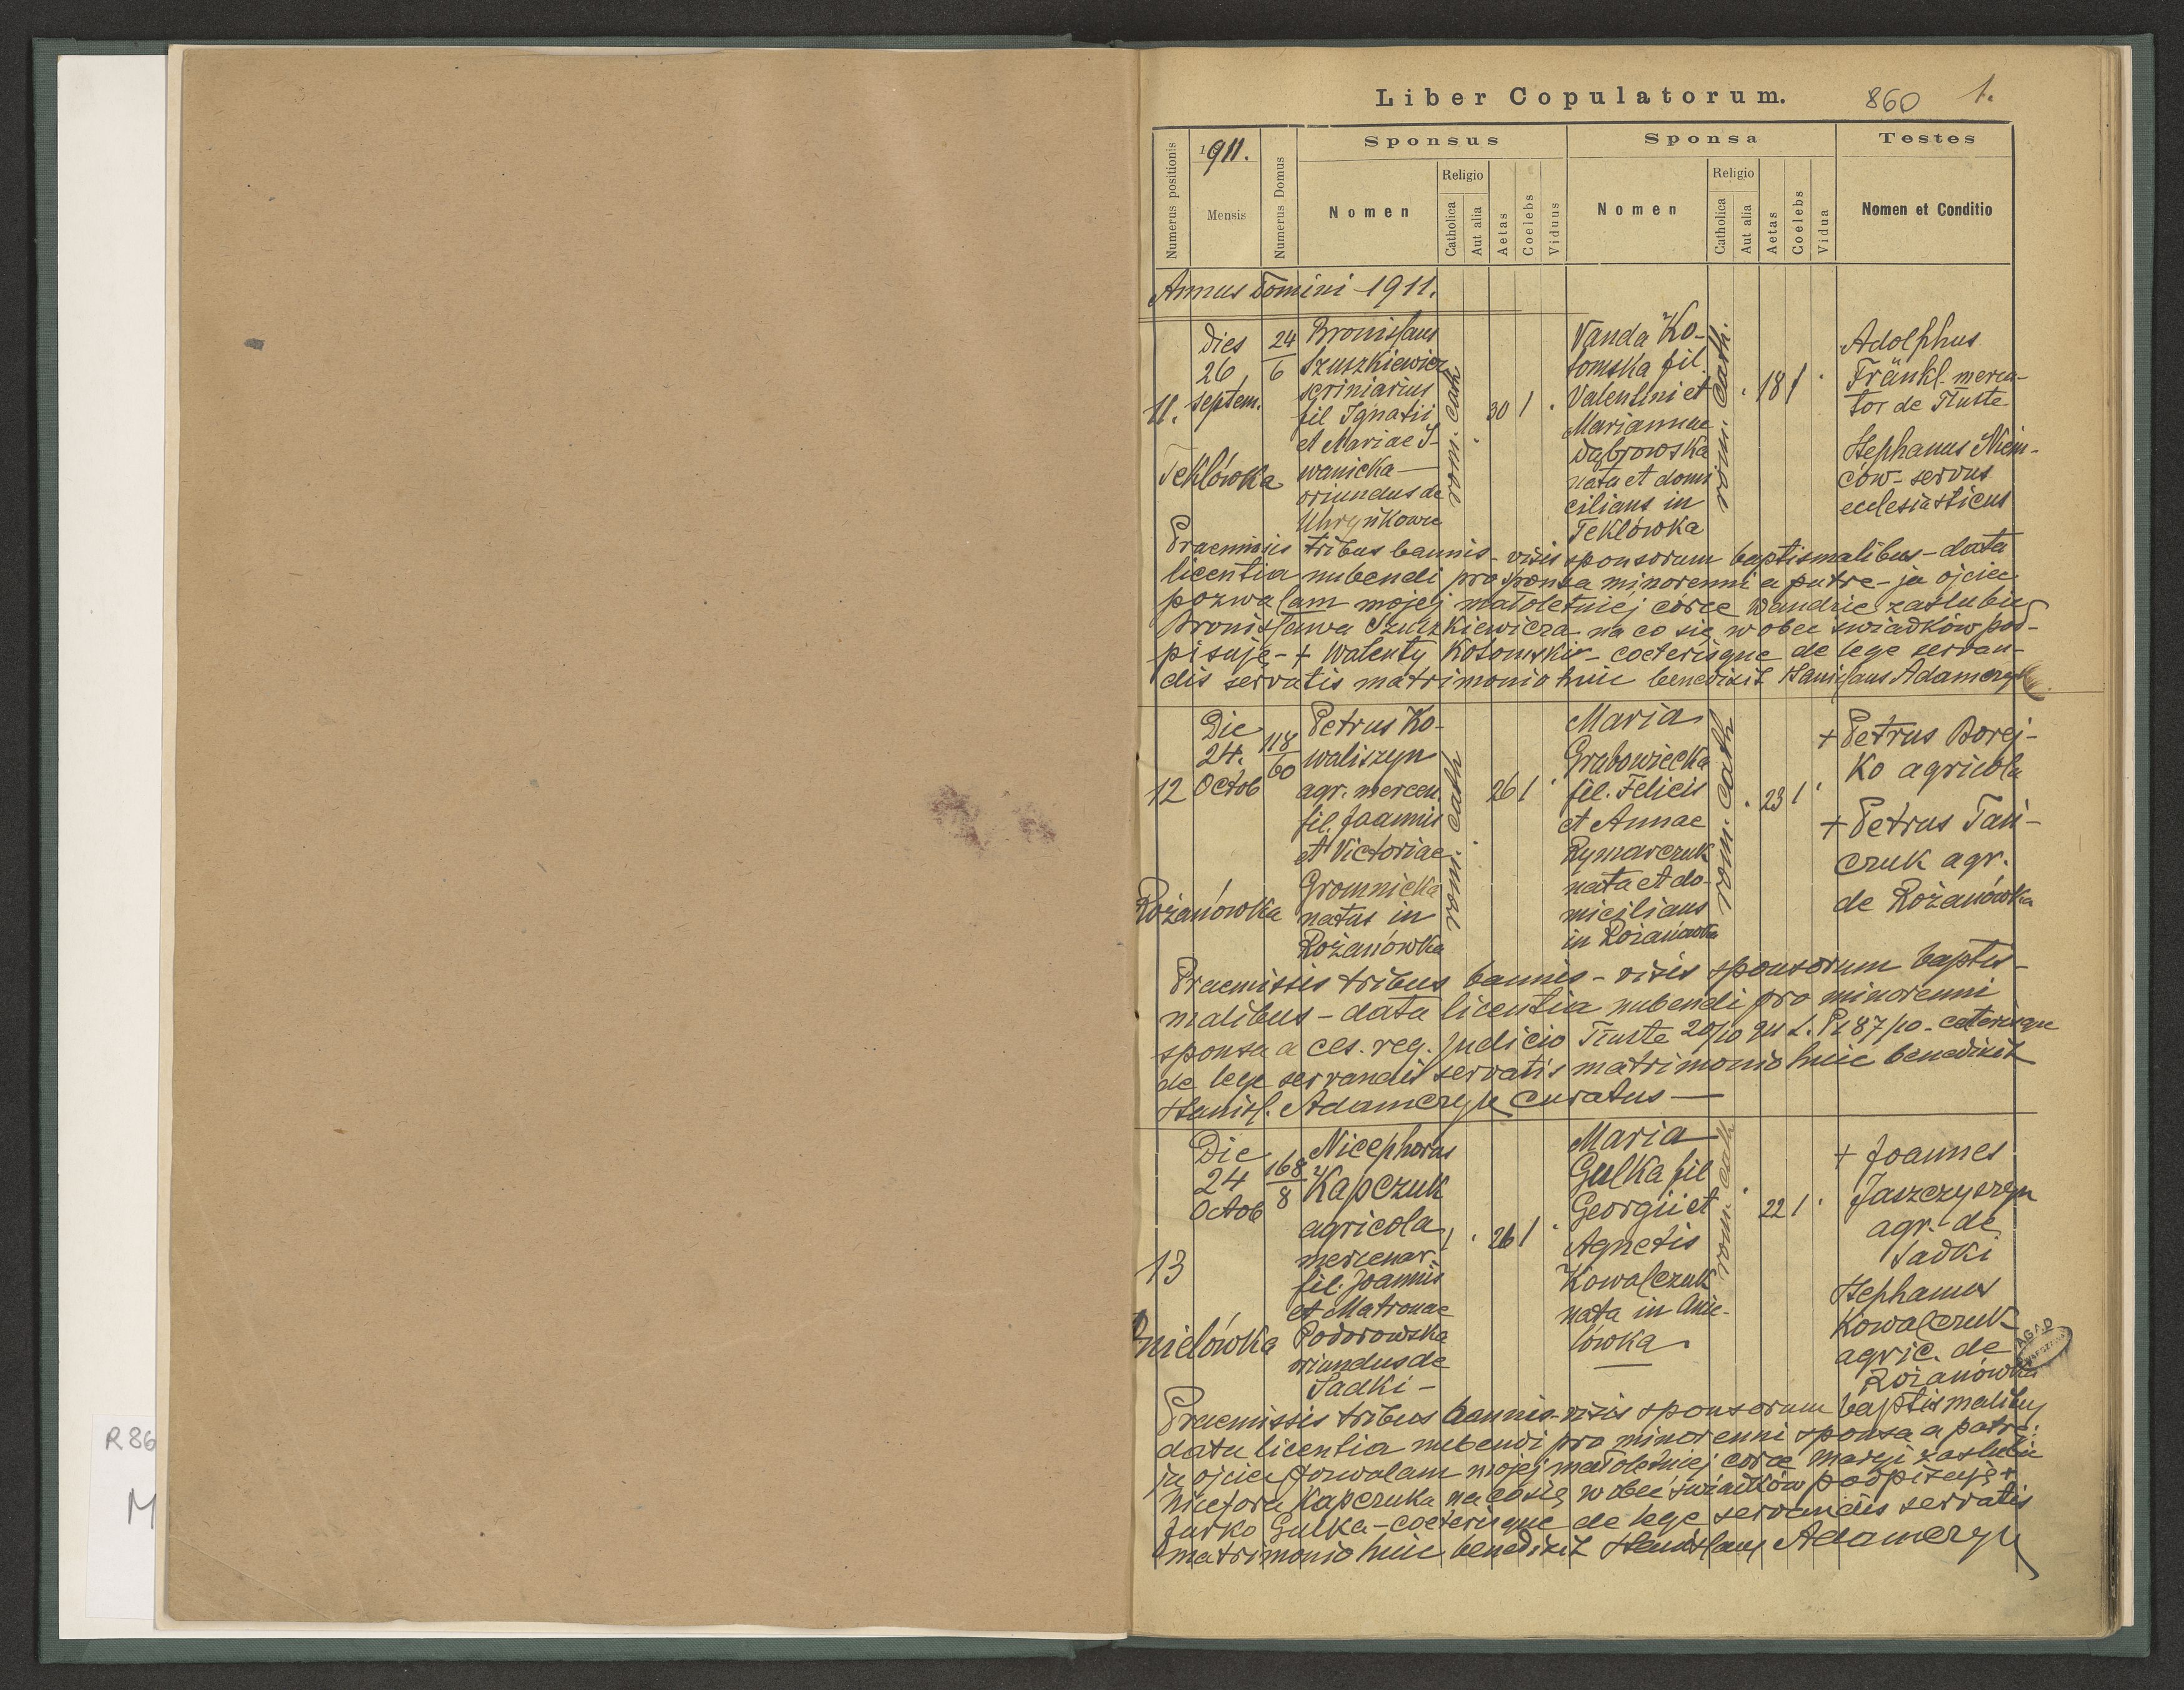 Liber Copulatorum.
860
1.
1911.
Sponsus
Sponsa
Testes
Numerus positionis
Mensis
Numerus Domus
Nomen
Religio
Catholica
Aut alia
Aetas
Coelebs
Viduus
Nomen
Religio
Catholica
Aut alia
Aetas
Coelebs
Vidua
Nomen et Conditio
Annus Domini 1911.
11.
Dies
26
Septem.
Teklówka
24
6
Bronislaus
Szuszkiewicz
scriniarius
fil Ignatii
et Mariae I-
wanicka
oriundus de
Uhryńkowce
rom. cath
30 1
Vanda Ko-
tomska fil.
Valentini et
Mariannae
Dąbrowska
nata et domi
cilians in
Teklówka
rom. cath.
18 1
Adolphus
Fränkl merca-
tor de Tłuste
Stephanus Niem-
ców - servus
ecclesiasticus
Praemissis tribus bannis - visis sponsorum baptismalibus - data
licentia nubendi pro sponsa minorenni a patre - ja ojciec
pozwalam mojej małoletniej córce Wandzie zaślubić
Bronisława Szuszkiewicza na co się wobec świadków pod-
pisuję - + Walenty Kotomski - coeterisque de lege servan-
dis servatis matrimonio huic benedixit Stanislaus Adamczyk
12
Die
24.
Octob
Rożanówka
118
60
Petrus Ko-
waliszyn
agr. mercen.
fil. Joannis
et Victoriae
Gromnicka
natus in
Rożanówka
rom. cath
26 1
Maria
Grabowiecka
fil. Felicis
et Annae
Rymarczuk
nata et do-
micilians
in Rożanówka
rom. cath
23 1
+ Petrus Borej-
ko agricola
+ Petrus Tań-
czuk agr.
de Rożanówka
Praemissis tribus bannis - visis sponsorum baptis-
malibus - data licentia nubendi pro minorenni
sponsa a ces. reg. judicio Tłuste 20/10 911 L. P. 187/10 - ceterisque
de lege servandis servatis matrimonio huic benedixit
Stanisl. Adamczyk curatus
13
Die
24
Octob
Anielówka
168
8
Nicephorus
Kapczuk
agricola
mercenar.
fil. Joannis
et Matronae
Podorowska
oriundus de
Sadki -
1
26 1
Maria
Gulka fil
Georgii et
Agnetis
Kowalczuk
nata in Anie-
lówka
rom. cath
22 1
+ Joannes
Jaszczyszyn
agr. de
Sadki
Stephanus
Kowalczuk
agric. de
Rożanówka
AGAD
Praemissis tribus bannis - visis sponsorum baptismalibus
data licentia nubendi pro minorenni sponsa a patre:
ja ojciec pozwalam mojej małoletniej córce Maryi zaślubić
Nicefora Kapczuka na co się wobec świadków podpisuję +
Jurko Gulka - coeterisque de lege servandis servatis
matrimonio huic benedixit Stanislaus Adamczyk
R 86
M